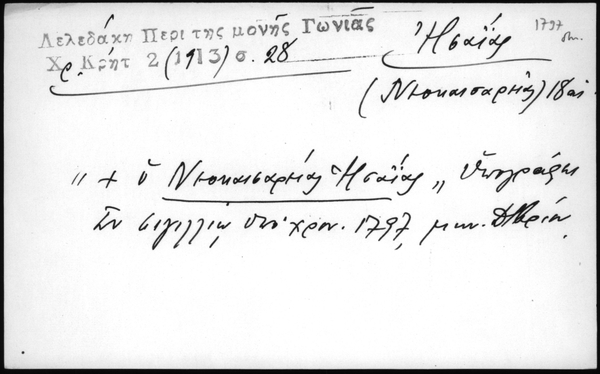 Λελεδάκη Περι της μονής Γωνιάς
Χρ. Κρήτ 2 (1913) σ. 28
Ἡσαΐας
1797
(Νεοκαισαρείας) 18 αἰ
„ + ὁ Νεοκαισαρείας Ἡσαΐας „ ὑπογράφει
ἐν σιγιλλίῳ ὑπὸ χρον. 1797, μην.